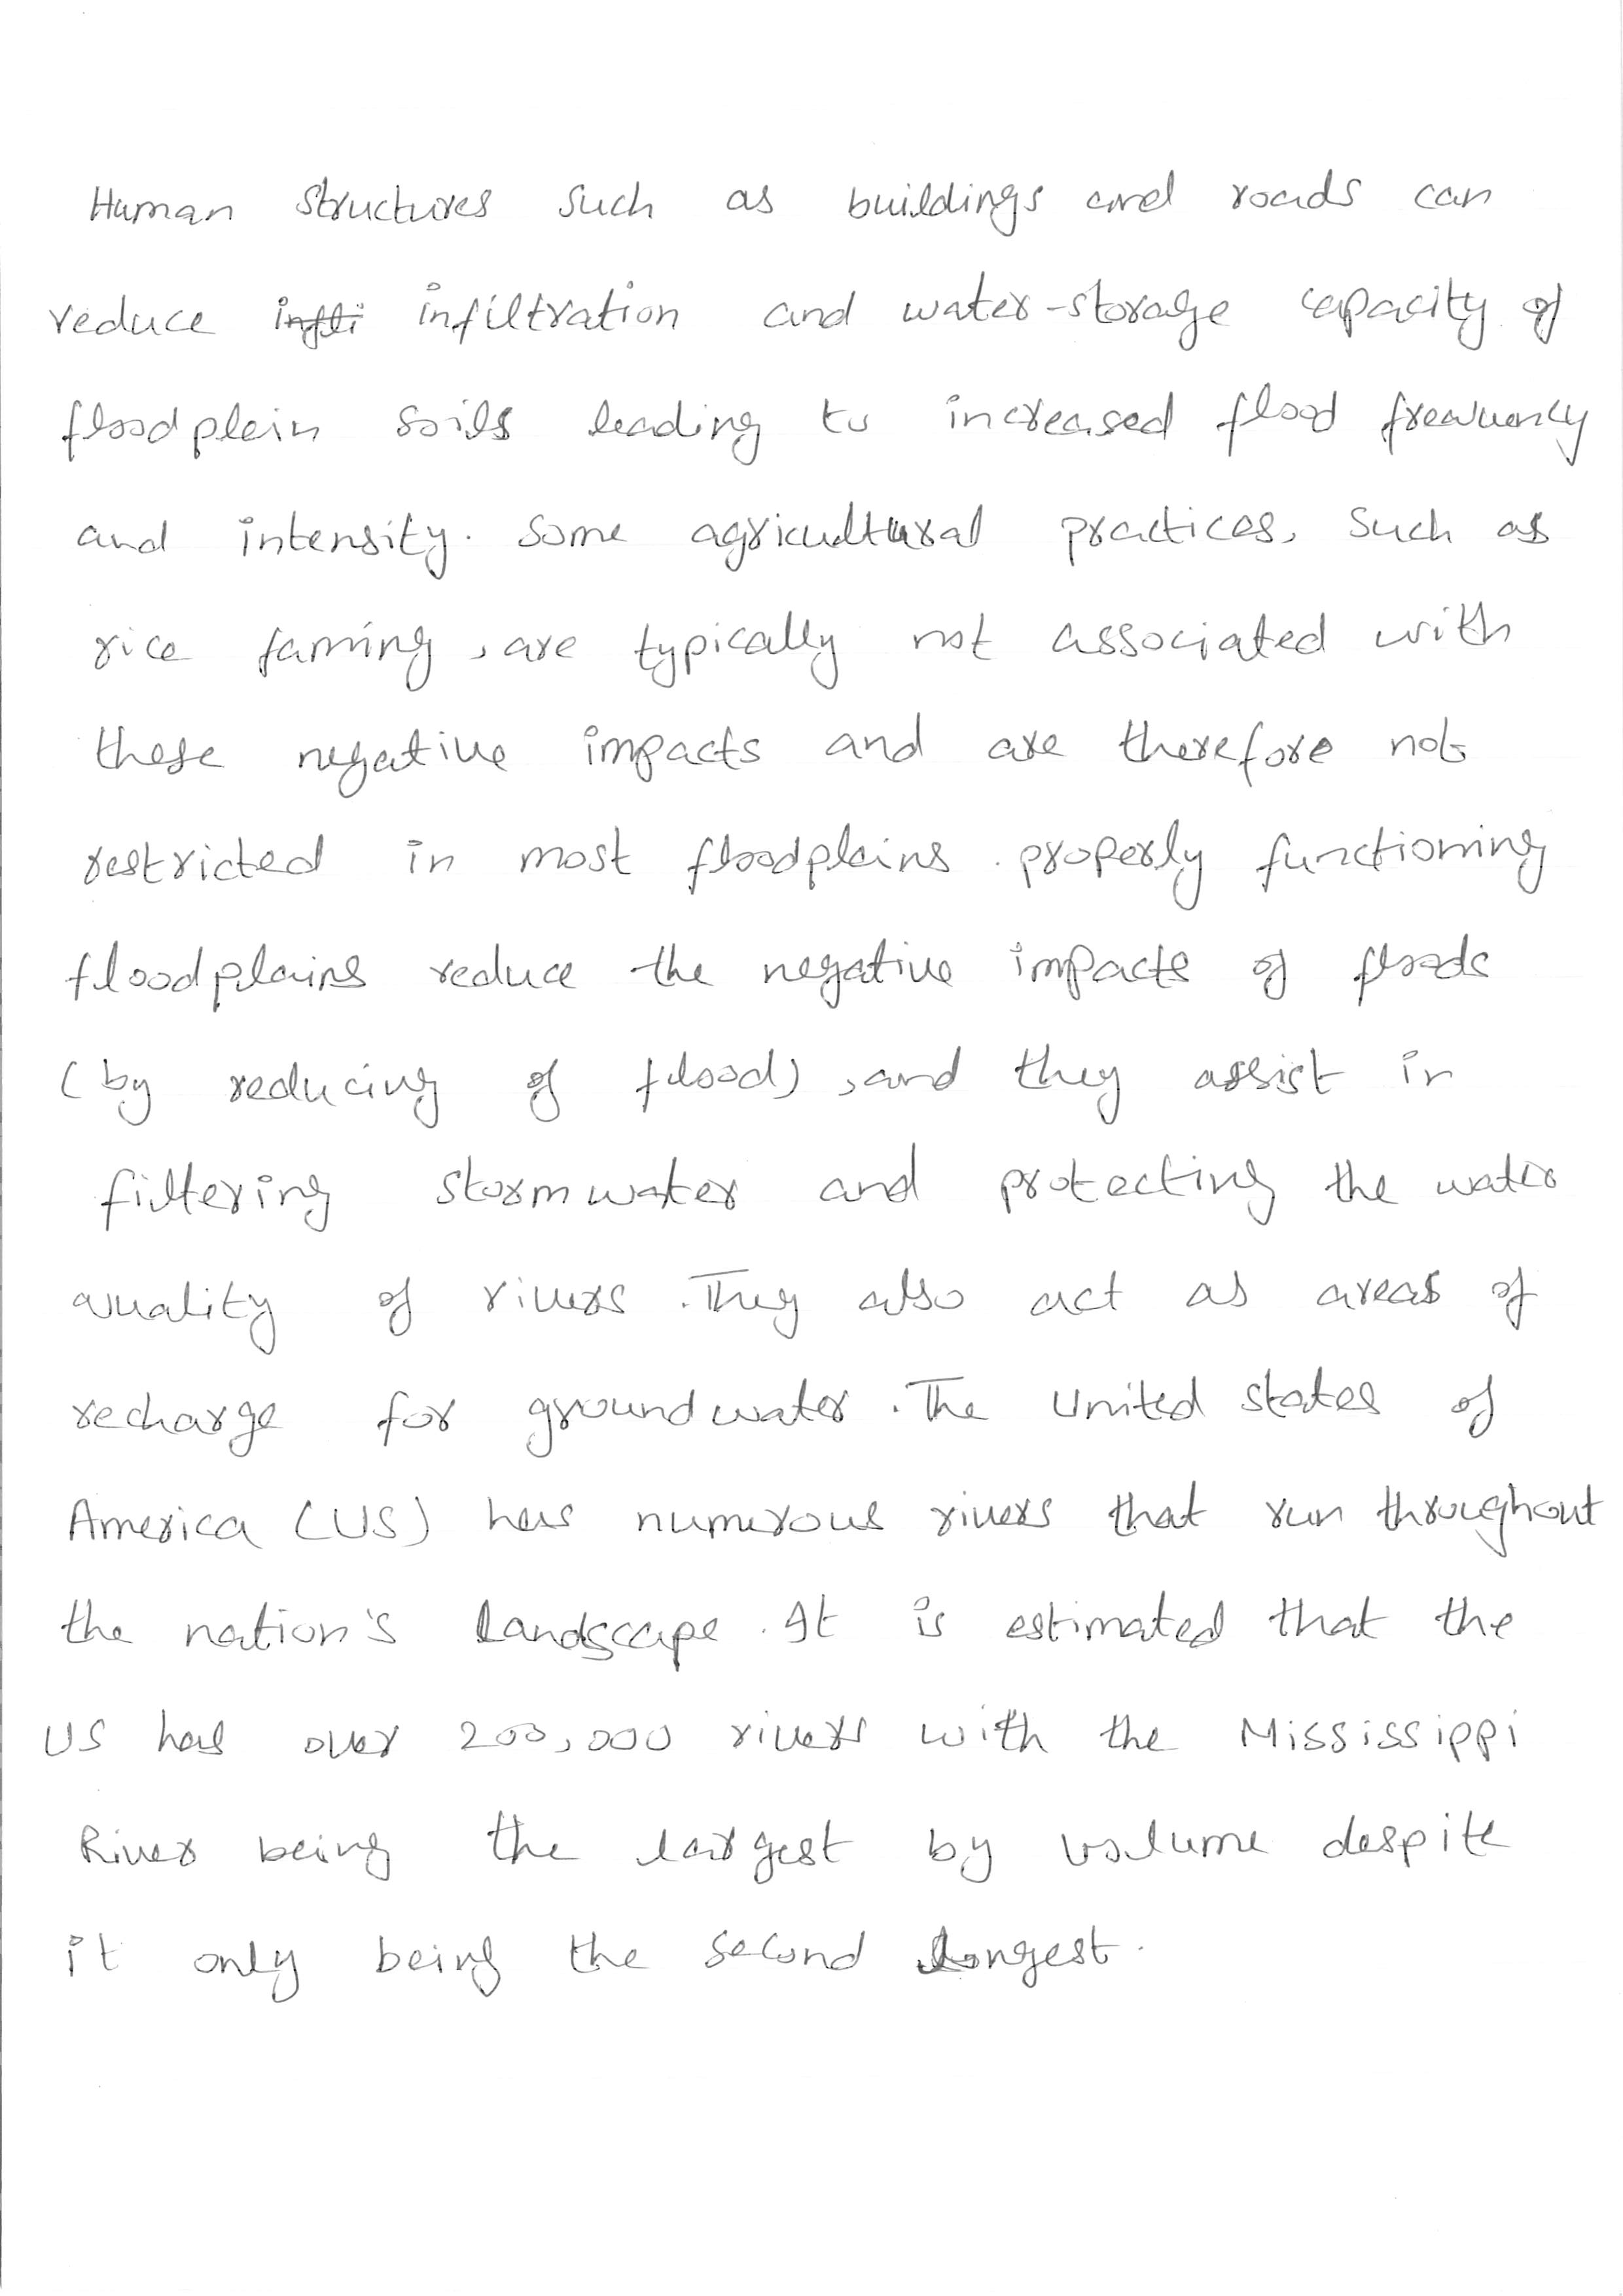 Human structures such as buildings and roads can
reduce infli infiltration and water-storage capacity of
floodplain soils leading to increased flood frequency
and intensity. Some agricultural practices, such as
rice faming, are typically not associated with
these negative impacts and are therefore not
restricted in most floodplains. properly functioning
floodplains reduce the negative impacts of floods
(by reducing of flood), and they assist in
filtering stormwater and protecting the water
quality of rivers. They also act as areas of
recharge for groundwater. The United states of
America (US) has numerous rivers that run throughout
the nation's landscape. It is estimated that the
US has over 200,000 rivers with the Mississippi
River being the largest by volume despite
it only being the second longest.